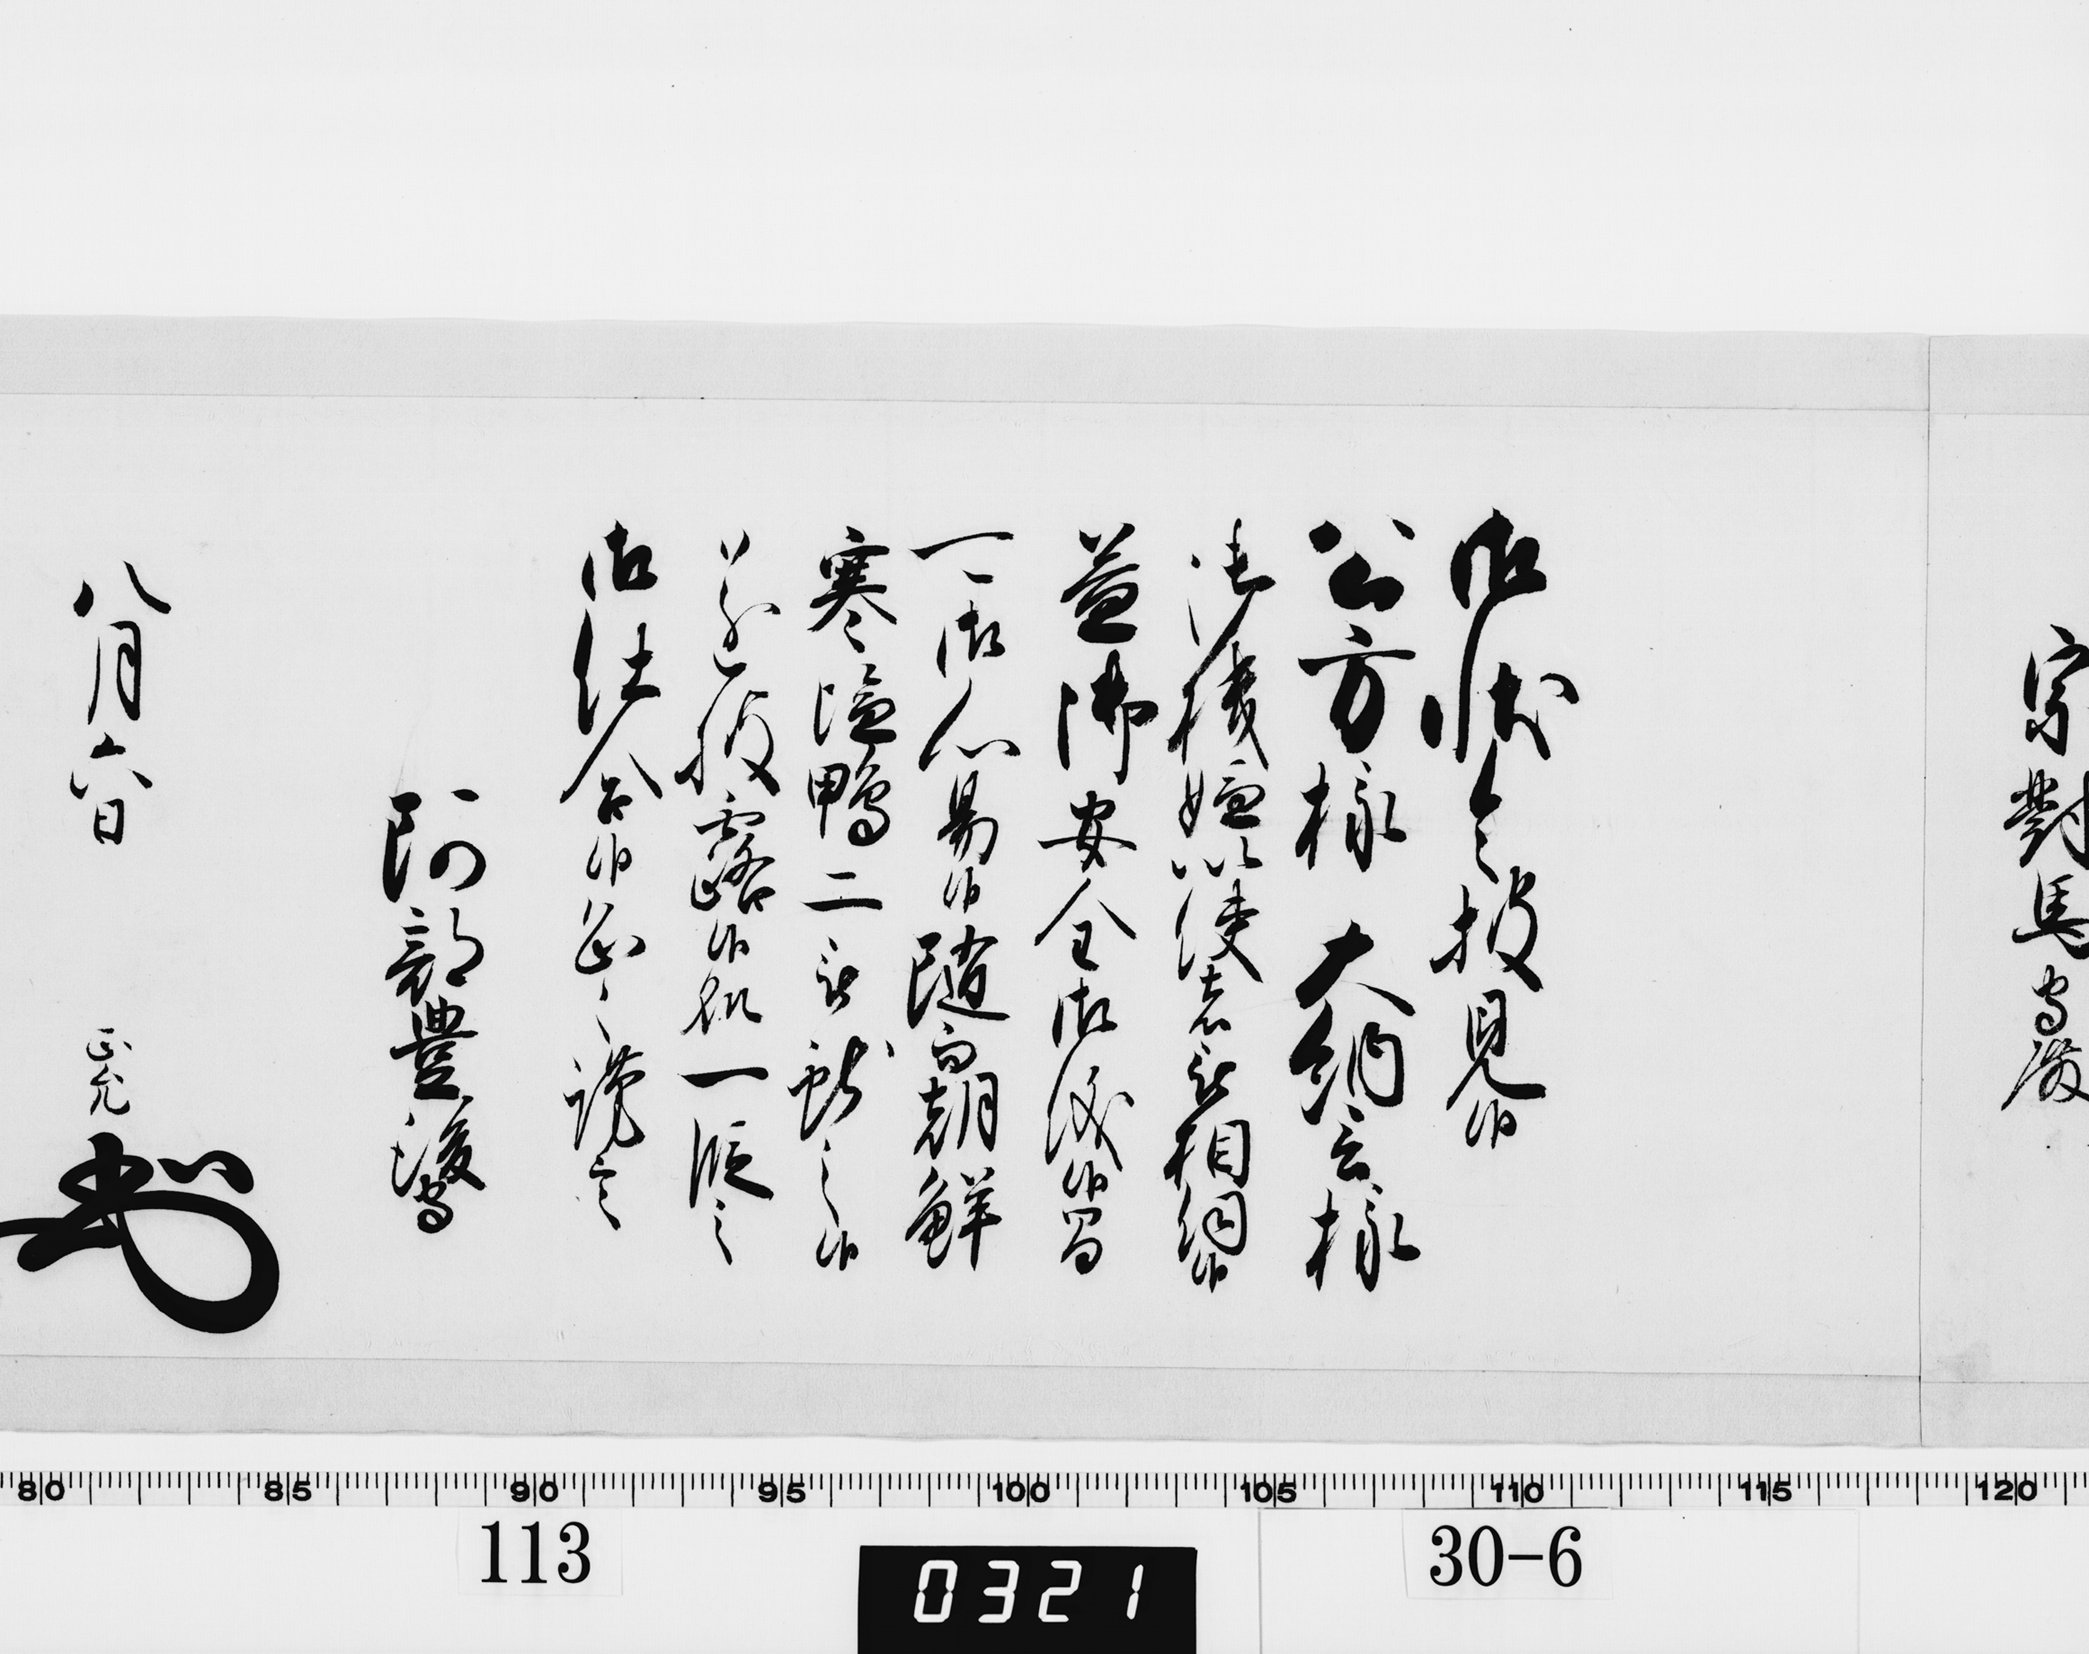 宗對馬守殿
御状令披見候
公方様大納言様
御機嫌以使者被相伺候
益御安全御儀候間
可御心易候随而朝鮮
寒塩鴨二被献之候
遂披露候処一段之
御仕合候恐々謹言
阿部豊後守
八月六日
正允
80 85 90 95 100 105 110 115 120
113
0321
30-6